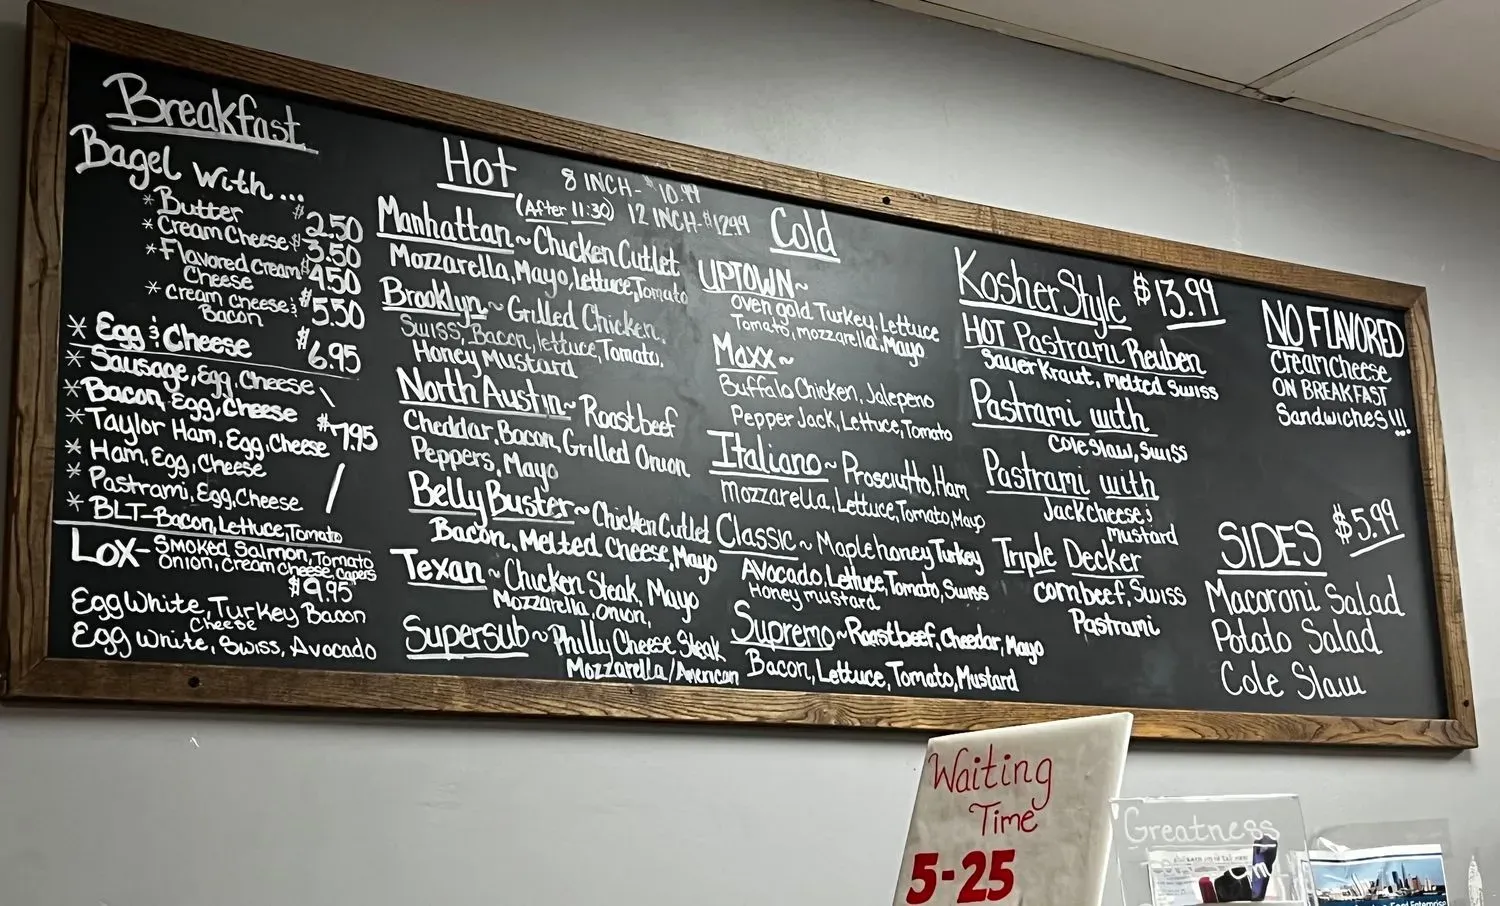 Breakfast
Bagel With...
* Butter $2.50
* Cream Cheese $3.50
* Flavored Cream $4.50
Cheese
* Cream cheese & $5.50
Bacon
* Egg & Cheese $6.95
* Sausage, Egg, Cheese
* Bacon, Egg, Cheese $7.95
* Taylor Ham, Egg, Cheese
* Ham, Egg, Cheese
* Pastrami, Egg, Cheese
* BLT-Bacon, Lettuce, Tomato
LOX- Smoked Salmon, Tomato
Onion, Cream Cheese, Capers
$9.95
Egg White, Turkey Bacon
Cheese
Egg White, Swiss, Avocado
Hot 8 INCH- $10.99
(After 11:30) 12 INCH-$12.99
Manhattan ~ Chicken Cutlet
Mozzarella, Mayo, Lettuce, Tomato
Brooklyn ~ Grilled Chicken,
Swiss, Bacon, lettuce, Tomato,
Honey Mustard
North Austin ~ Roast beef
Cheddar, Bacon, Grilled Onion
Peppers, Mayo
Belly Buster ~ Chicken Cutlet
Bacon, Melted Cheese, Mayo
Texan ~ Chicken Steak, Mayo
Mozzarella, Onion,
Supersub ~ Philly Cheese Steak
Mozzarella/American
Cold
UPTOWN ~
oven gold Turkey, Lettuce
Tomato, mozzarella, Mayo
Maxx ~
Buffalo Chicken, Jalepeno
Pepper Jack, Lettuce, Tomato
Italiano ~ Prosciutto, Ham
Mozzarella, Lettuce, Tomato, Mayo
Classic ~ Maple honey Turkey
Avocado, Lettuce, Tomato, Swiss
Honey mustard
Supremo ~ Roastbeef, Chedar, Mayo
Bacon, Lettuce, Tomato, Mustard
Kosher Style $13.99
HOT Pastrami Reuben
Sauer Kraut, Melted Swiss
Pastrami with
Cole Slaw, Swiss
Pastrami with
Jack cheese &
Mustard
Triple Decker
cornbeef, Swiss
Pastrami
NO FLAVORED
creamcheese
ON BREAKFAST
Sandwiches!!!
SIDES $5.99
Macaroni Salad
Potato Salad
Cole Slaw
Waiting
Time
5-25
Greatness